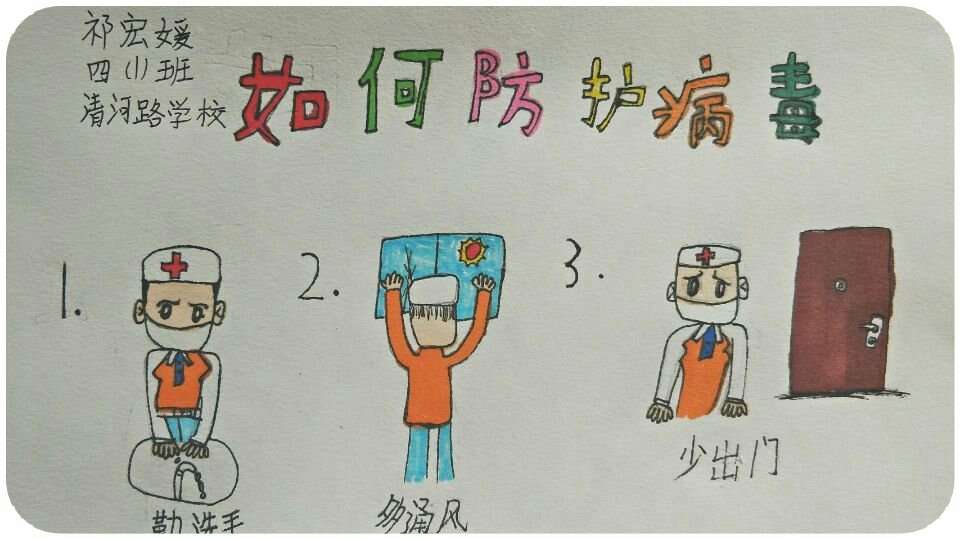 祁宏媛
四(1)班
清河路学校
如何防护病毒
1.
2.
3.
少出门
勤洗手
多通风